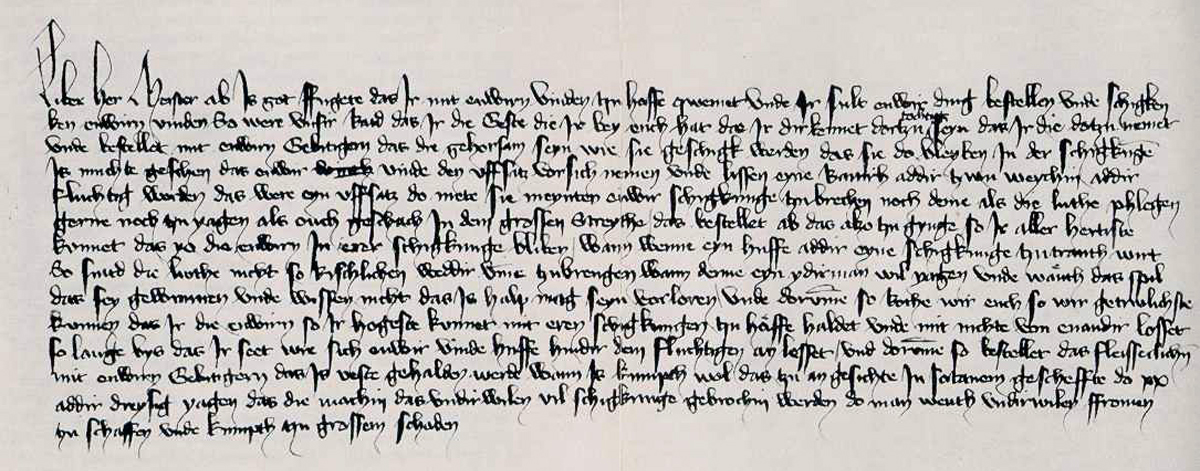 Liber her Meister ab Is got ffugete das Ir mit euwirn vinden tzu hoffe qwemet vnde Ir sult euwir ding bestellen vnde schigken
ken euwirn vinden So were vnsir Raid das Ir die Geste die Ir bey euch hat die Ir dirkennet dortzu tochtig seyn das Ir die dortzu nemet
vnde bestellet mit euwirn Gebitigern das die gehorsam seyn wie sie geschigk werden das sie do bleyben In der schigkunge
Is muchte geschen das euwir vinde den vffsatz vorsich nemen vnde lissen eyne banir addir tzwu weychin addir
fluchtig werden das were eyn vffsatz do mete sie meynten euwir schigkunge tzubrechen noch deme als die luthe phlegen
gerne noch tzu yagen als ouch geschach In dem grossen Streythe das bestellet ab das also tzu gynge so Ir aller hertiste
kunnet das yo die euwirn In erer schigkunge bliben wann wenne eyn huffe addir eyne schigkunge tzutranth wirt
So sint die luthe nicht so rischlichen weddir vme tzubrengen wann deme eyn ydirman wil yagen vnde wenth das spil
das sey gewunnen vnde wissen nicht das Is halp mag seyn vorloren vnde dorvme so rothe wir euch so wir getruwlichste
kunnen das Ir die euwirn so Ir hogeste kunnet mit eren schigkungen tzu hoffe haldet vnde mit nichte von enandir losset
so lange bys das Ir seet wie sich euwir vinde huffe hindir dem fluchtigen an lesset vnd dorvme so bestellet das fleisseclichin
mit euwirn Gebitigern das Is veste gehalden werde wann Is kumpth wol das tzu angesichte In sotanem gescheffte do xx
addir dreysig yagen das die machin das vndirwilen vil schigkunge gebrochin werden do man wenth vndirwilen ffromen
tzu schaffen vnde kumpth tzu grossem schaden